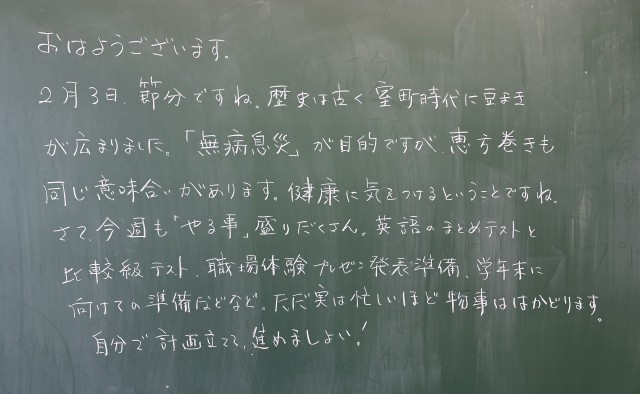 おはようございます。
2月3日、節分ですね。歴史は古く室町時代に豆まき
が広まりました。「無病息災」が目的ですが、恵方巻きも
同じ意味合いがあります。健康に気をつけるということですね。
さて、今週も「やる事」盛りだくさん。英語のまとめテストと
比較級テスト、職場体験プレゼン発表準備、学年末に
向けての準備などなど。ただ実は忙しいほど物事ははかどります。
自分で計画立てて、進めましょい!